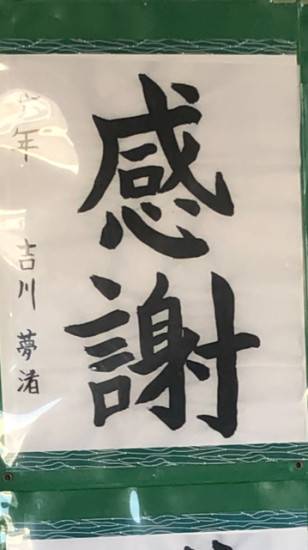 感謝
年
吉川 夢渚